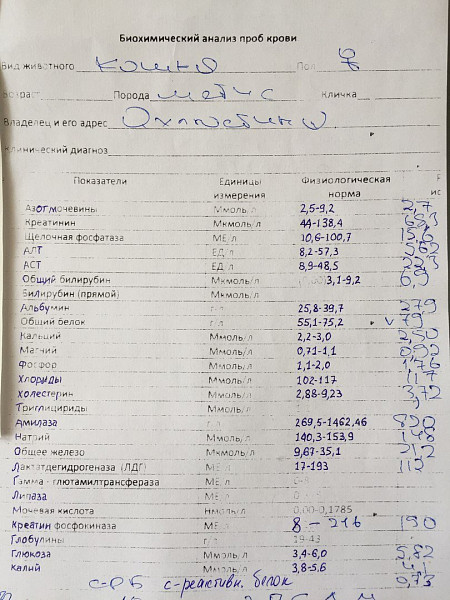 Биохимический анализ проб крови
Вид животного кошка Пол ♀
Возраст Порода метис Кличка
Владелец и его адрес
Клинический диагноз
Показатели Единицы измерения Физиологическая норма
Азот мочевины Ммоль/л 2,5-9,2
Креатинин Мкмоль/л 44-138,4
Щелочная фосфатаза МЕ/л 10,6-100,7
АЛТ ЕД/л 8,2-57,3
АСТ ЕД/л 8,9-48,5
Общий билирубин Мкмоль/л 3,1-9,2
Билирубин (прямой) Мкмоль/л
Альбумин г/л 25,8-39,7 279
Общий белок г/л 55,1-75,2 v 79
Кальций Ммоль/л 2,2-3,0 2,50
Магний Ммоль/л 0,71-1,1 0,92
Фосфор Ммоль/л 1,1-2,0 1,76
Хлориды Ммоль/л 102-117
Холестерин Ммоль/л 2,88-9,23 3,72
Триглицириды Ммоль/л
Амилаза 269,5-1462,46 820
Натрий Ммоль/л 140,3-153,9 148
Общее железо Мкмоль/л 9,67-35,1 21,2
Лактатдегидрогеназа (ЛДГ) МЕ/л 17-193 112
Гамма - глютамилтрансфераза МЕ/л
Липаза МЕ/л
Мочевая кислота Нмоль/л 0,00-0,1785
Креатин фосфокиназа МЕ/л 8 - 216 190
Глобулины г/л 19-43
Глюкоза Ммоль/л 3,4-6,0 5,82
Калий Ммоль/л 3,8-5,6 4,1
с-РБ с-реактивн. белок 0,73